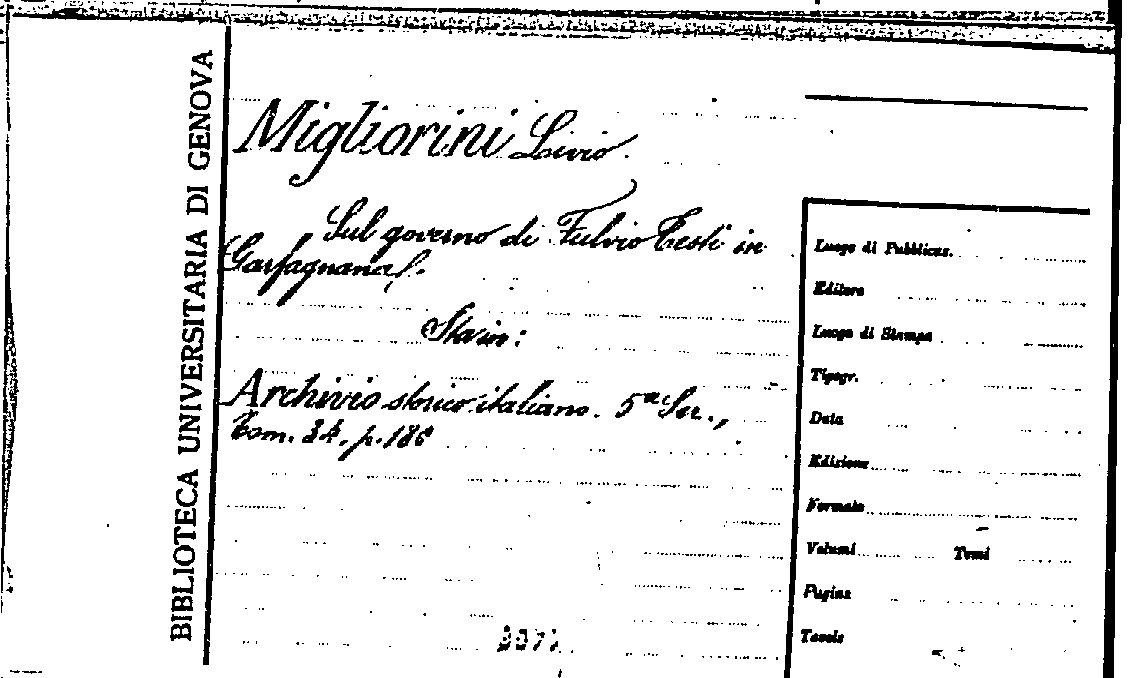 BIBLIOTECA UNIVERSITARIA DI GENOVA
Migliorini Livio.
Sul governo di Fulvio Testi in
Garfagnana.
Sta in:
Archivio storico italiano. 5ª Ser.,
Tom. 34. p. 186
Luogo di Pubblicaz.
Editore
Luogo di Stampa
Tipogr.
Data
Edizione
Formato
Volumi Tomi
Pagine
Tavole